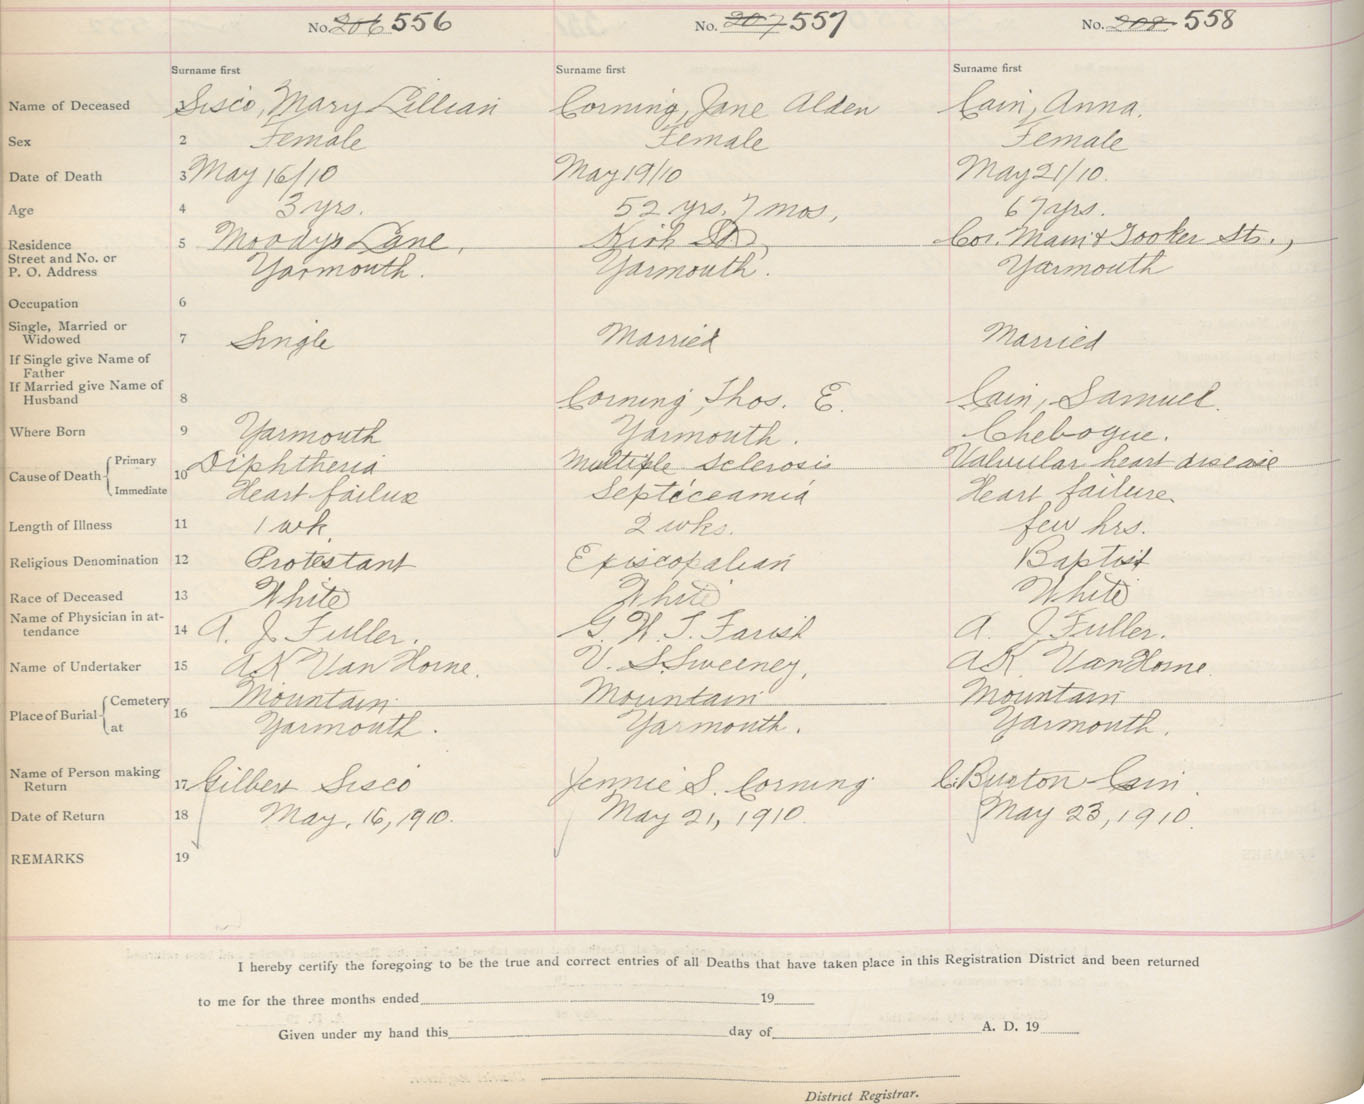 No. 206 556 No. 207 557 No. 208 558
Surname first Surname first Surname first
Name of Deceased 1 Sisco, Mary Lillian Corning, Jane Alden Cain, Anna.
Sex 2 Female Female Female
Date of Death 3 May 16/10 May 19/10 May 21/10.
Age 4 3 yrs. 52 yrs. 7 mos, 67 yrs.
Residence 5 Moody's Lane, Kirk St, Cor. Main & Tooker Sts.,
Street and No. or
P. O. Address Yarmouth. Yarmouth. Yarmouth
Occupation 6
Single, Married or
Widowed 7 Single Married Married
If Single give Name of
Father
If Married give Name of
Husband 8 Corning, Thos. E. Cain, Samuel.
Where Born 9 Yarmouth Yarmouth. Chebogue.
Cause of Death Primary 10 Diphtheria Multiple Sclerosis Valvular heart disease
Immediate Heart failure Septiceamia Heart failure.
Length of Illness 11 1 wk. 2 wks. few hrs.
Religious Denomination 12 Protestant Episcopalian Baptist
Race of Deceased 13 White White White
Name of Physician in at-
tendance 14 A. J. Fuller. G. W. T. Farish A. J Fuller.
Name of Undertaker 15 A K Van Horne. V. S. Sweeney, A K Van Horne.
Place of Burial Cemetery 16 Mountain Mountain Mountain
at Yarmouth. Yarmouth. Yarmouth.
Name of Person making
Return 17 Gilbert Sisco Jennie S. Corning C. Burton Cain.
Date of Return 18 May, 16, 1910. May 21, 1910. May 23, 1910.
REMARKS 19
I hereby certify the foregoing to be the true and correct entries of all Deaths that have taken place in this Registration District and been returned
to me for the three months ended 19
Given under my hand this day of A. D. 19
District Registrar.